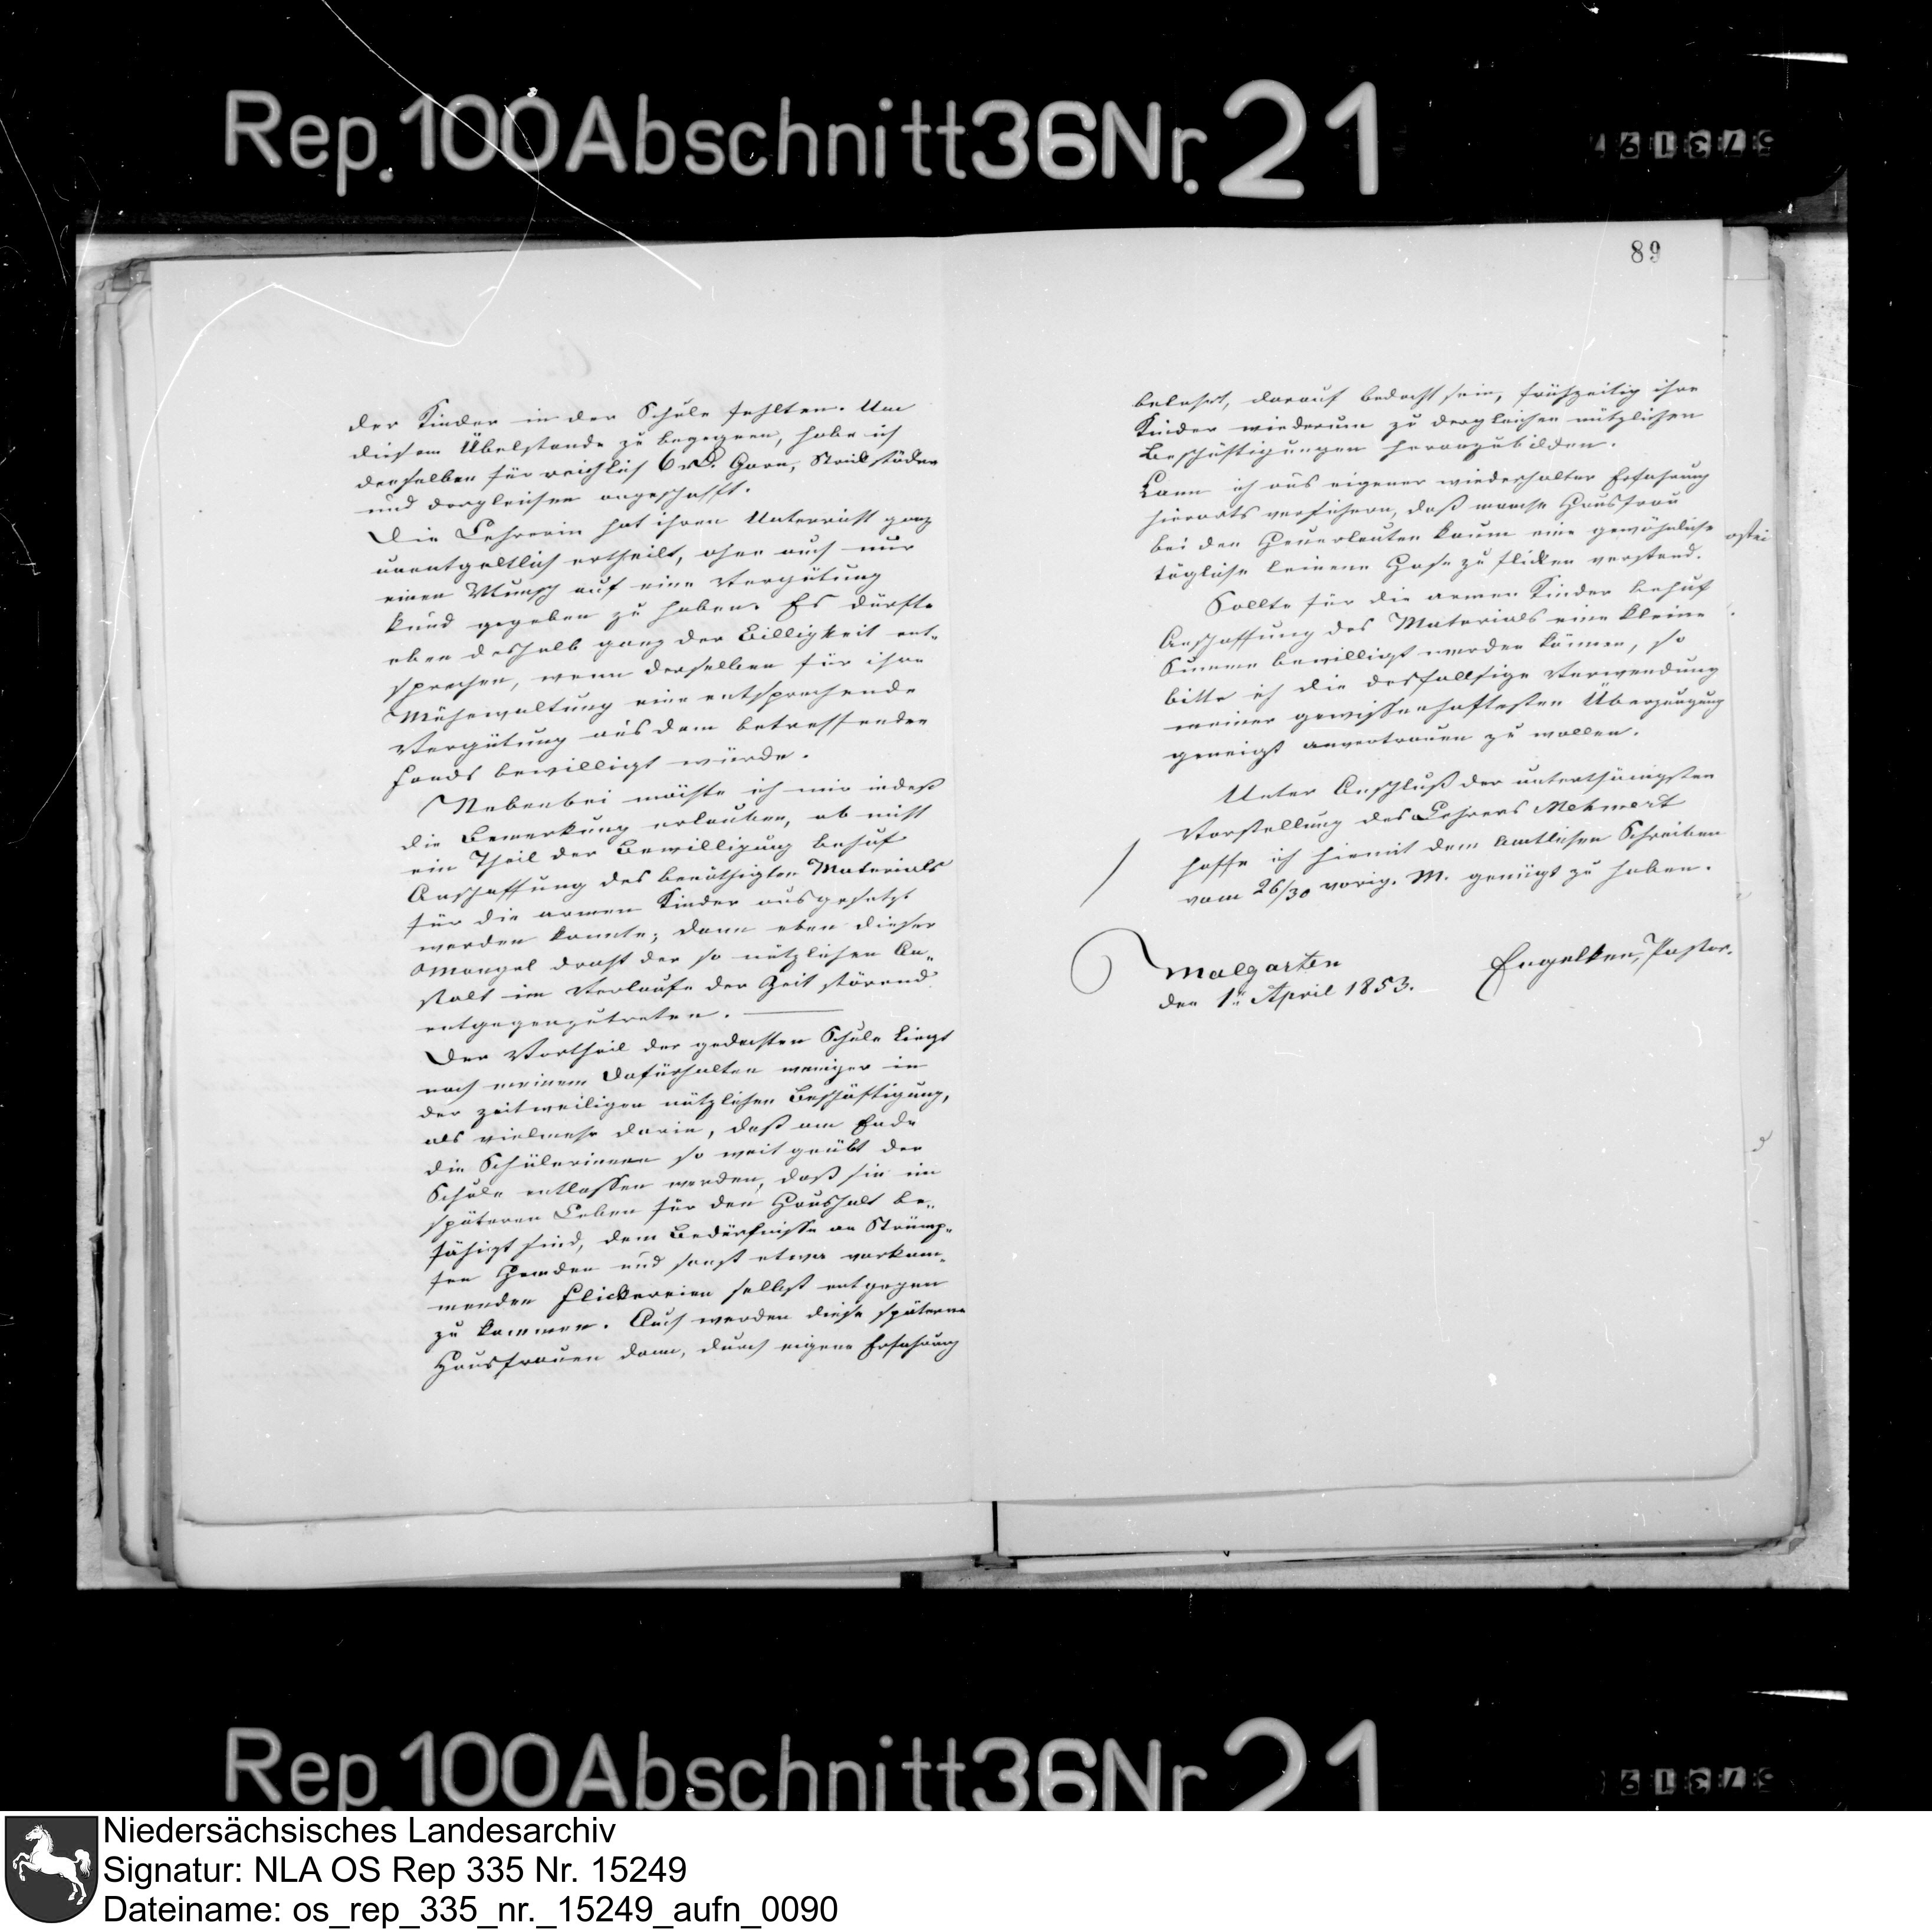 Rep. 100 Abschnitt 36 Nr. 21
89
der Kinder in der Schule fehlten. Um
diesem Übelstande zu begegnen, habe ich
denselben für reichlich 6 rℓ. Garn, Strickstöcke
und dergleichen angeschafft.
Die Lehrerin hat ihren Unterricht ganz
unentgeltlich ertheilt, ohne auch nur
einen Wunsch auf eine Vergütung
kund gegeben zu haben. Es dürfte
eben deshalb ganz der Billigkeit ent-
sprechen, wenn derselben für ihre
Mühewaltung eine entsprechende
Vergütung aus dem betreffenden
Fonds bewilligt würde.
Nebenbei möchte ich mir indeß
die Bemerkung erlauben, ob nicht
ein Theil der Bewilligung behuf
Anschaffung des benöthigten Materials
für die armen Kinder ausgesetzt
werden konnte; denn eben dieser
Mangel droht der so nützlichen An-
stalt im Verlaufe der Zeit störend
entgegenzutreten.
Der Vortheil der gedachten Schule liegt
nach meinem Dafürhalten weniger in
der zeitweiligen nützlichen Beschäftigung,
als vielmehr darin, daß am Ende
die Schülerinnen so weit geübt der
Schule entlassen werden, daß sie im
späteren Leben für den Haushalt be-
fähigt sind, dem Bedürfnisse an Strüm-
fen Hemden und sonst etwa vorkom-
menden Flickereien selbst entgegen
zu kommen. Auch werden diese späteren
Hausfrauen dann, durch eigene Erfahrung
belehrt, darauf bedacht sein, frühzeitig ihre
Kinder wiederum zu dergleichen nützlichen
Beschäftigungen heranzubilden.
Kann ich aus eigener wiederholter Erfahrung
hierorts versichern, daß manche Hausfrau
bei den Heuerleuten kaum eine gewöhnliche
tägliche leinene Hose zu flicken verstand.
Sollte für die armen Kinder behuf
Anschaffung des Materials eine kleine
Summe bewilligt werden können, so
bitte ich die desfallsige Verwendung
meiner gewissenhaftesten Überzeugung
geneigt anvertrauen zu wollen.
Unter Anschluß der unterthänigsten
Vorstellung des Lehrers Mehmert
hoffe ich hiemit dem Amtlichen Schreiben
vom 26/30 vorig. M. genügt zu haben.
Malgarten
den 1t April 1853.
Engelken, Pastor.
Rep. 100 Abschnitt 36 Nr. 21
Niedersächsisches Landesarchiv
Signatur: NLA OS Rep 335 Nr. 15249
Dateiname: os_rep_335_nr._15249_aufn_0090